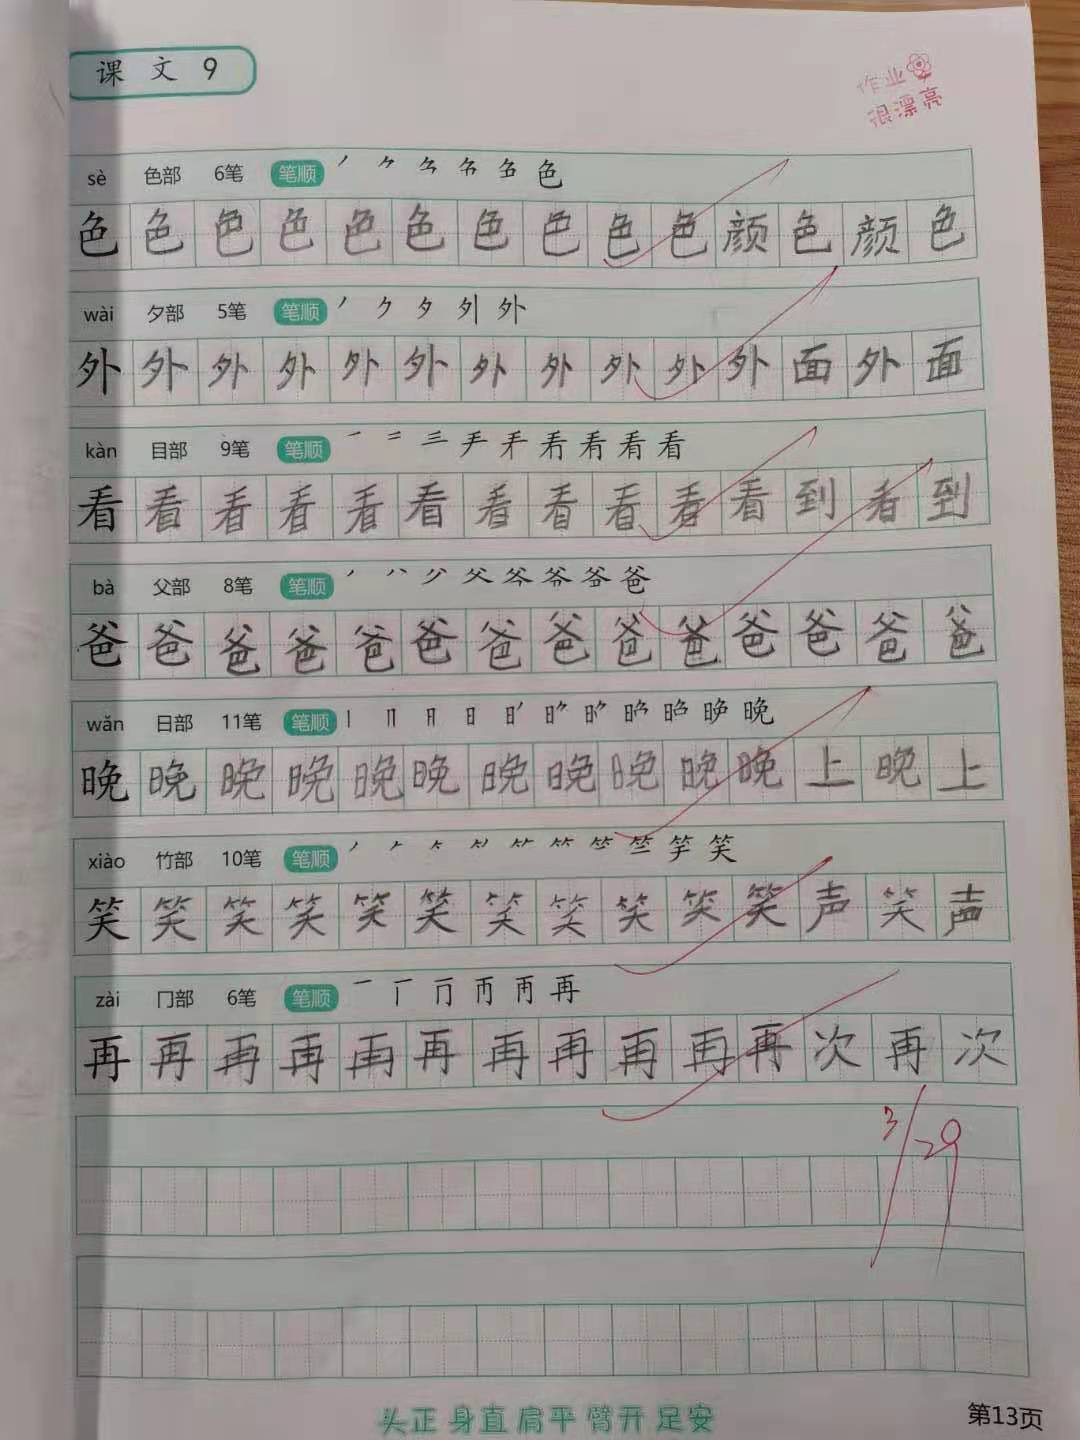 课文9
作业
很漂亮
sè 色部 6笔 笔顺 色
色 色 色 色 色 色 色 色 色 色 颜 色 颜 色
wài 夕部 5笔 笔顺 外
外 外 外 外 外 外 外 外 外 外 外 面 外 面
kàn 目部 9笔 笔顺 看
看 看 看 看 看 看 看 看 看 看 看 到 看 到
bà 父部 8笔 笔顺 爸
爸 爸 爸 爸 爸 爸 爸 爸 爸 爸 爸 爸 爸 爸
wǎn 日部 11笔 笔顺 晚
晚 晚 晚 晚 晚 晚 晚 晚 晚 晚 晚 上 晚 上
xiào 竹部 10笔 笔顺 笑
笑 笑 笑 笑 笑 笑 笑 笑 笑 笑 笑 声 笑 声
zài 冂部 6笔 笔顺 再
再 再 再 再 再 再 再 再 再 再 再 次 再 次
3/29
头正 身直 肩平 臂开 足安
第13页